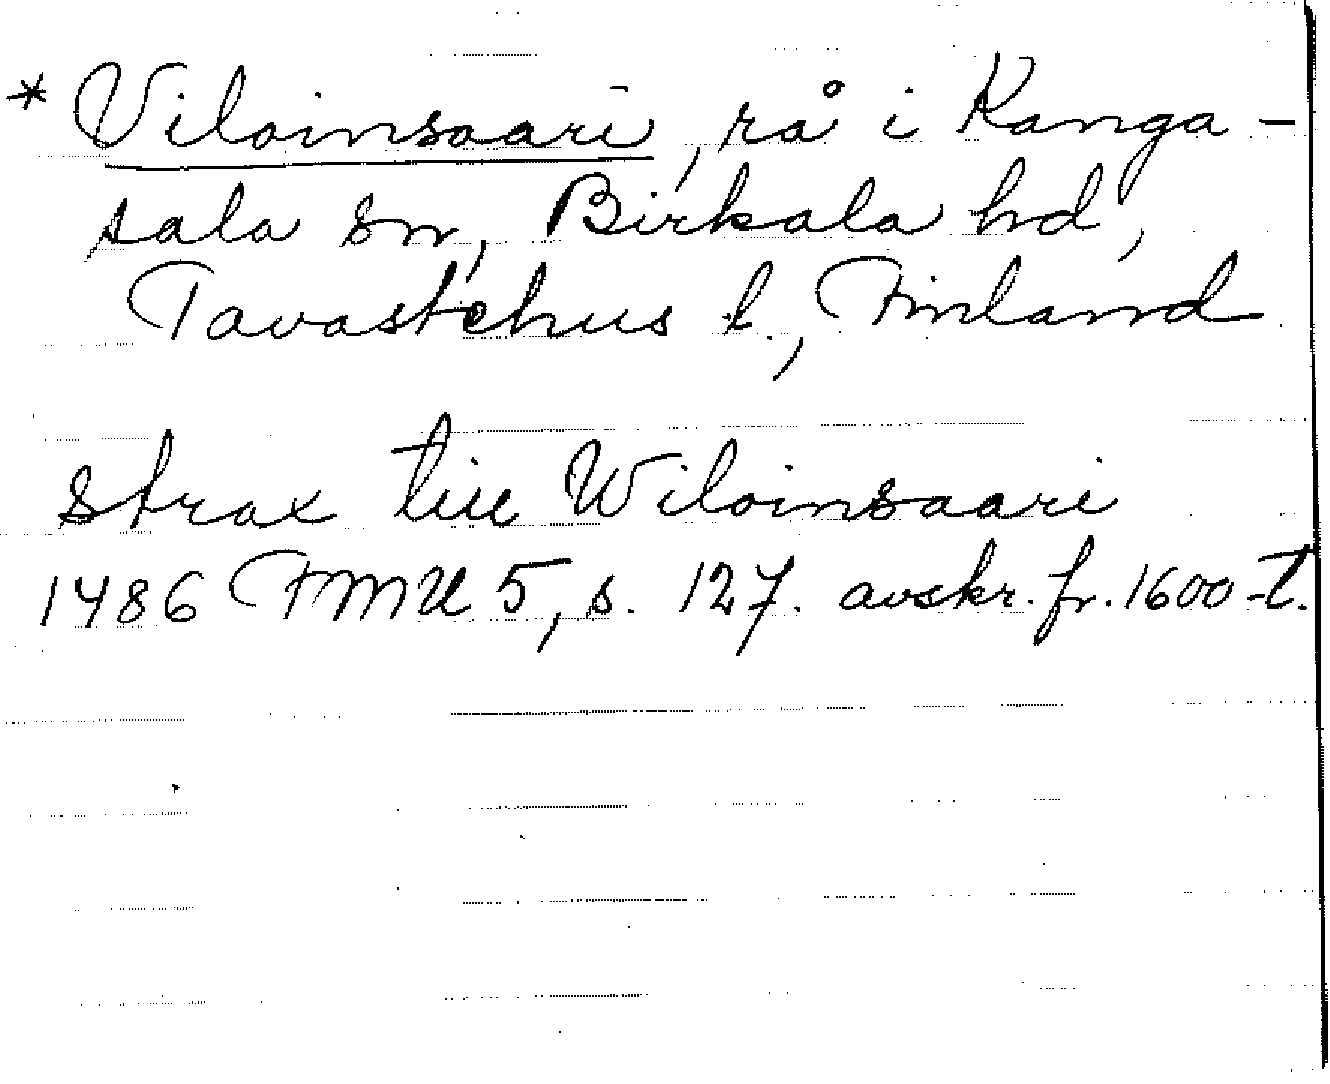 * Viloinsaari, rå i Kanga-
sala sn, Birkala hd,
Tavastehus l., Finland
strax till Wiloinsaari
1486 FMU 5, s. 127. avskr. fr. 1600-t.